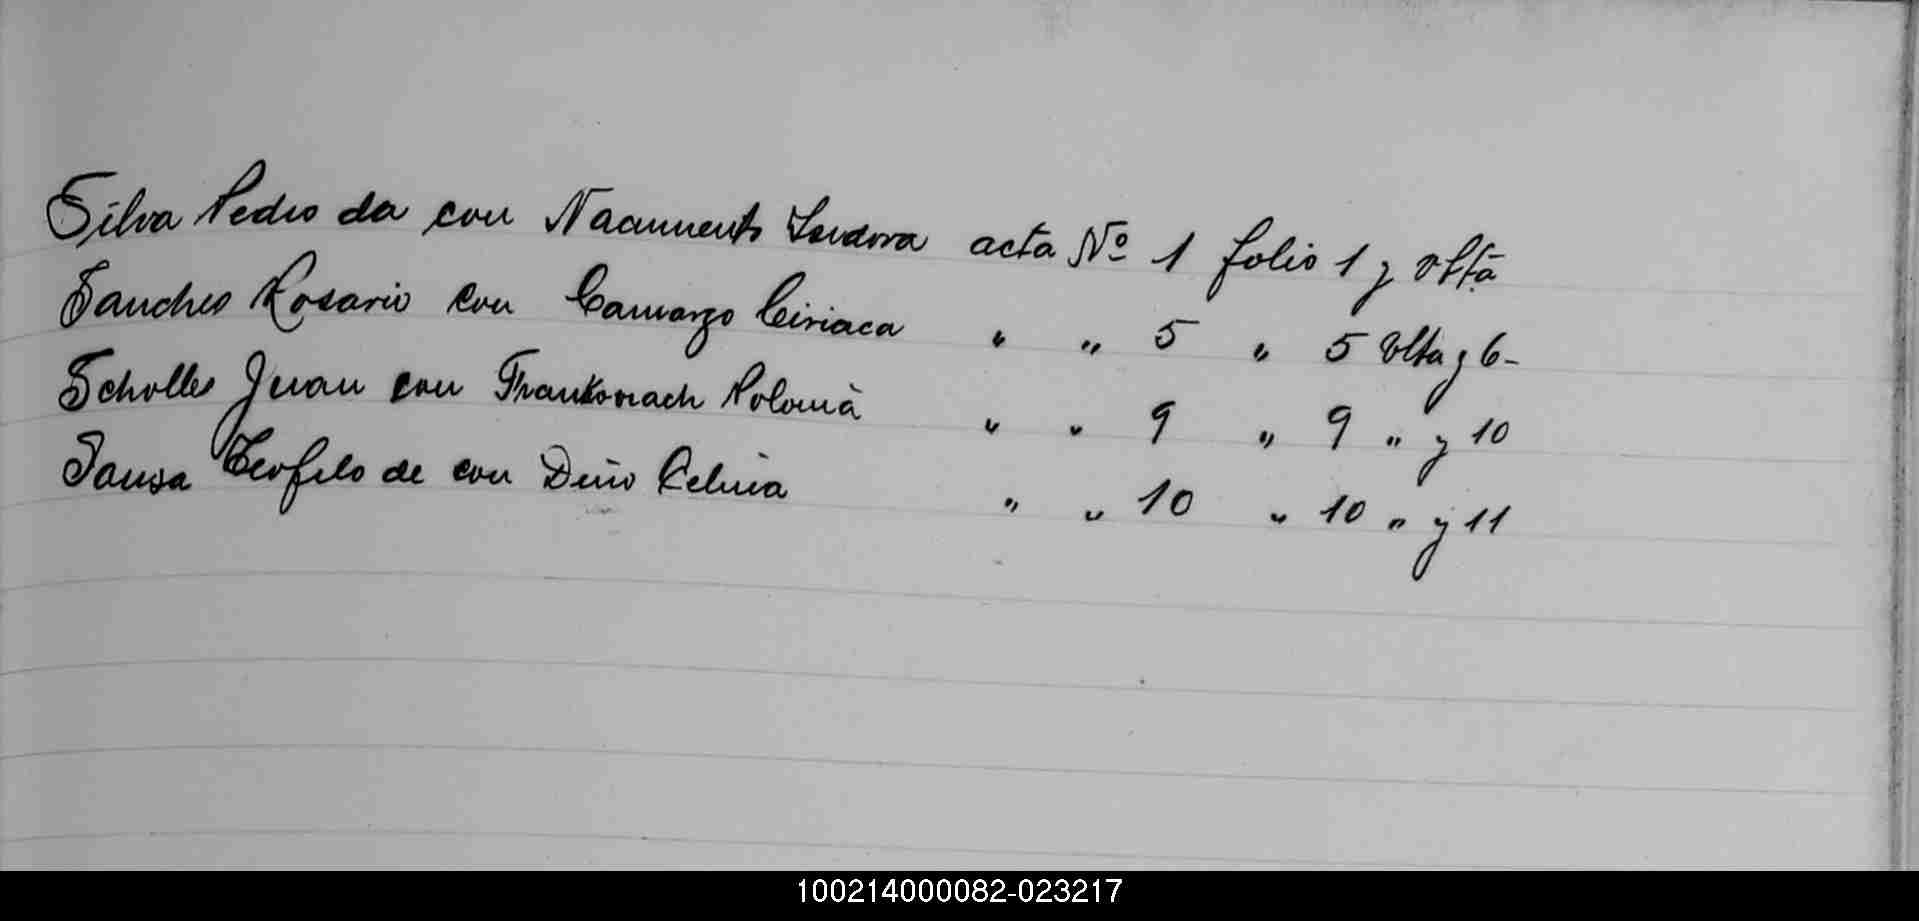 Silva Pedro da con Nacimiento Isidora acta Nº 1 folio 1 y vlta
Sanches Rosario con Camargo Ciriaca " " 5 " 5 vlta y 6-
Scholles Juan con Polonia " " 9 " 9 " y 10
Sousa Teofilo de con Celina " " 10 " 10 " y 11
100214000082-023217